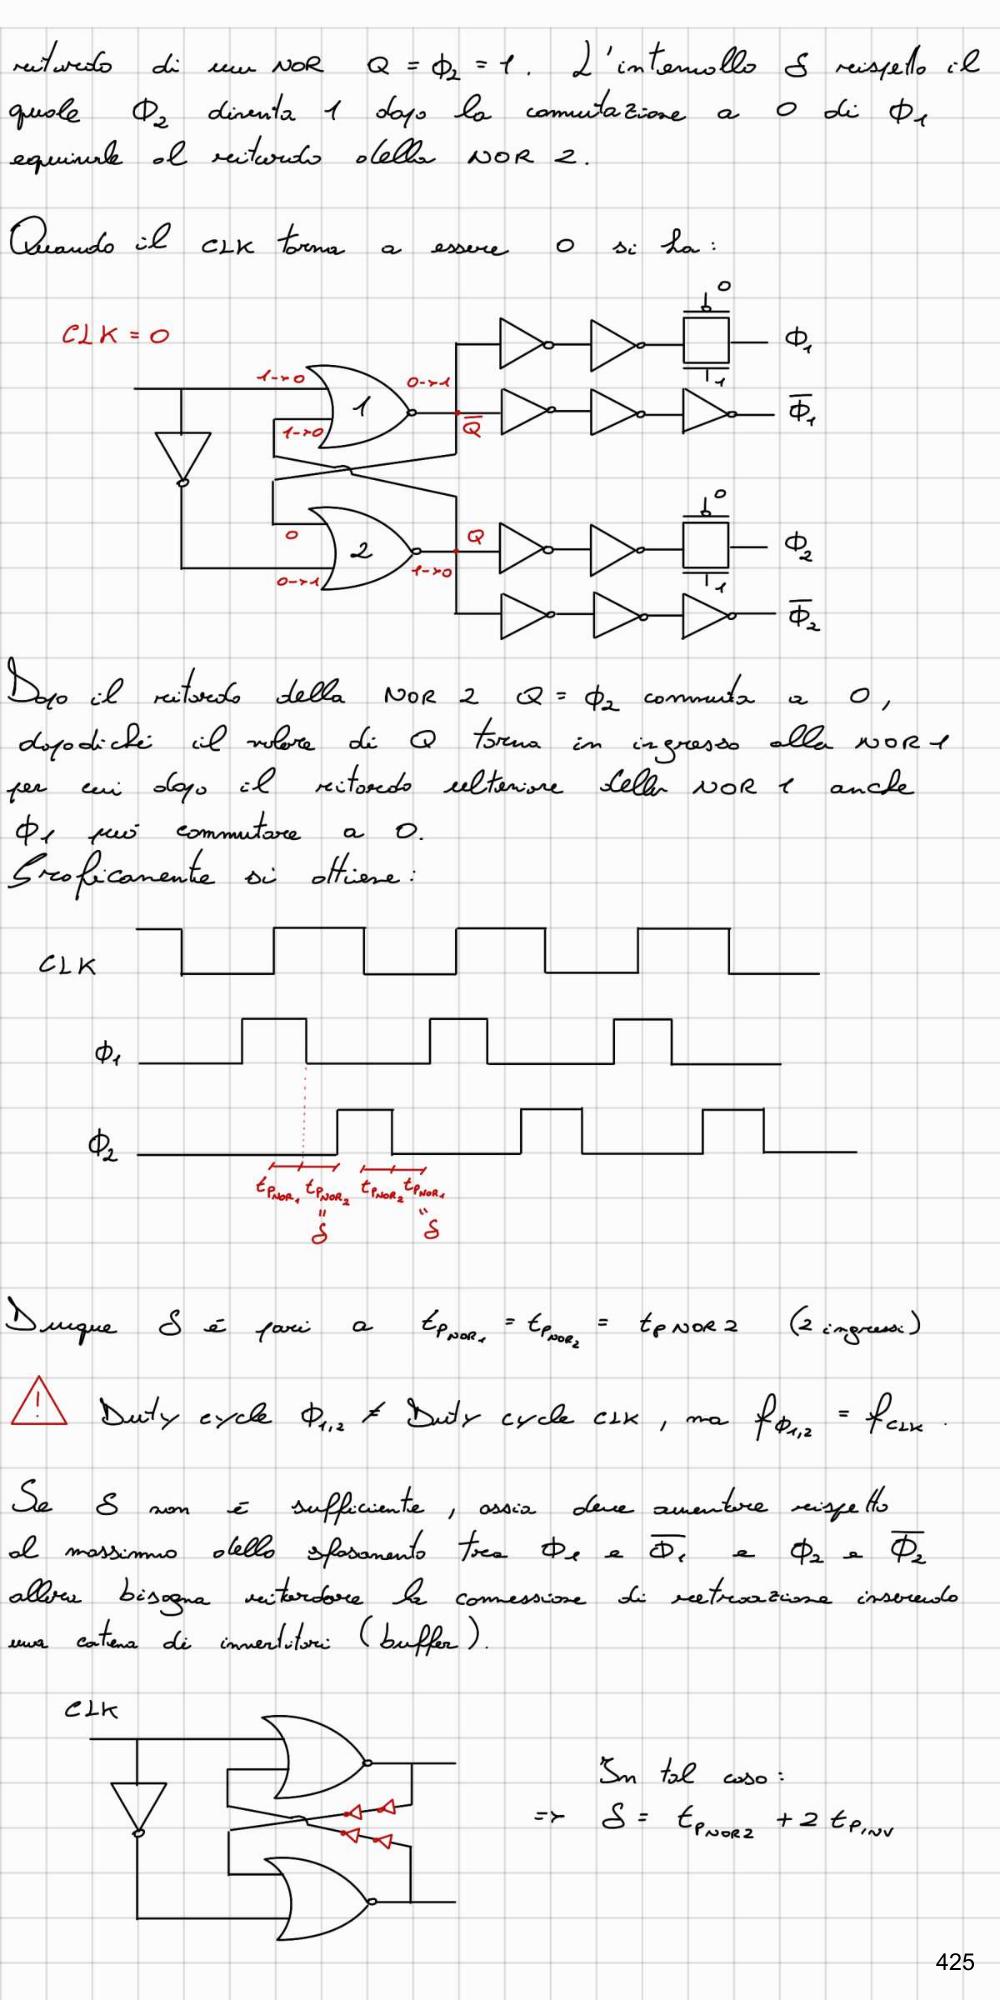 ritardo di un NOR Q = Φ₂ = 1. L'intervallo δ rispetto il
quale Φ₂ diventa 1 dopo la commutazione a 0 di Φ₁
equivale al ritardo della NOR 2.
Quando il CLK torna a essere 0 si ha:
CLK = 0
1->0
1
0->1
1->0
Q̅
0
1
Φ₁
Φ̅₁
0
2
0->1
Q
1->0
0
1
Φ₂
Φ̅₂
Dopo il ritardo della NOR 2 Q = Φ₂ commuta a 0,
dopodiché il valore di Q torna in ingresso alla NOR 1
per cui dopo il ritardo ulteriore della NOR 1 anche
Φ₁ può commutare a 0.
Graficamente si ottiene:
CLK
Φ₁
Φ₂
tPNOR₁ tPNOR₂ tPNOR₂ tPNOR₁
" "
δ δ
Dunque δ è pari a tPNOR₁ = tPNOR₂ = tPNOR2 (2 ingressi)
! Duty cycle Φ₁,₂ ≠ Duty cycle CLK, ma fΦ₁,₂ = fCLK.
Se δ non è sufficiente, ossia deve aumentare rispetto
al massimo dello sfasamento tra Φ₁ e Φ̅₁ e Φ₂ e Φ̅₂
allora bisogna ritardare la connessione di retroazione inserendo
una catena di invertitori (buffer).
CLK
In tal caso:
=> δ = tPNOR2 + 2 tPINV
425